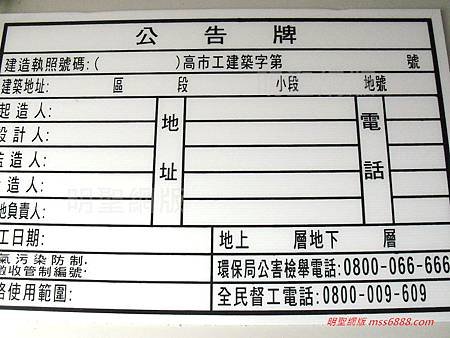 公告牌
建造執照號碼:( )高市工建築字第 號
建築地址: 區 段 小段 地號
起造人: 地址 電話
設計人:
監造人:
造人:
地負責人:
工日期: 地上 層地下 層
氣污染防制
徵收管制編號: 環保局公害檢舉電話:0800-066-666
路使用範圍: 全民督工電話:0800-009-609
明聖網版
明聖網版 mss6888.com